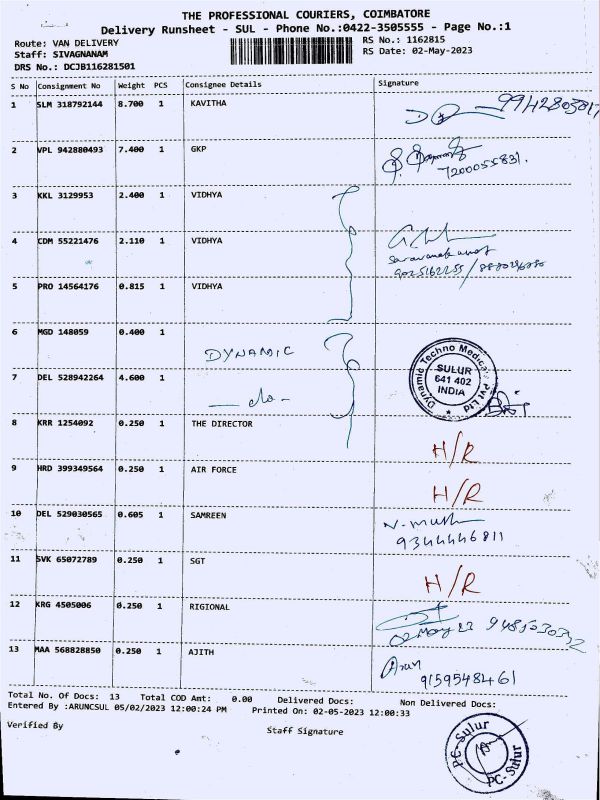 THE PROFESSIONAL COURIERS, COIMBATORE
Delivery Runsheet - SUL - Phone No.:0422-3505555 - Page No.:1
Route: VAN DELIVERY
RS No.: 1162815
Staff: SIVAGNANAM
RS Date: 02-May-2023
DRS No.: DCJB116281501
S No Consignment No Weight PCS Consignee Details Signature
1 SLM 318792144 8.700 1 KAVITHA
2 VPL 942880493 7.400 1 GKP
7200055831.
3 KKL 3129953 2.400 1 VIDHYA
4 CDM 55221476 2.110 1 VIDHYA
5 PRO 14564176 0.815 1 VIDHYA
6 MGD 148059 0.400 1
DYNAMIC
Dynamic Techno Medicals Pvt Ltd
SULUR
641 402
INDIA
7 DEL 528942264 4.600 1
- do -
8 KRR 1254092 0.250 1 THE DIRECTOR
H/R
9 HRD 399349564 0.250 1 AIR FORCE
H/R
10 DEL 529030565 0.605 1 SAMREEN
9344446811
11 SVK 65072789 0.250 1 SGT
H/R
12 KRG 4505006 0.250 1 RIGIONAL
02 May 23
13 MAA 568828850 0.250 1 AJITH
Arun
9159548461
Total No. Of Docs: 13 Total COD Amt: 0.00 Delivered Docs: Non Delivered Docs:
Entered By :ARUNCSUL 05/02/2023 12:00:24 PM Printed On: 02-05-2023 12:00:33
Verified By
Staff Signature
PC-Sulur
PC-Sulur